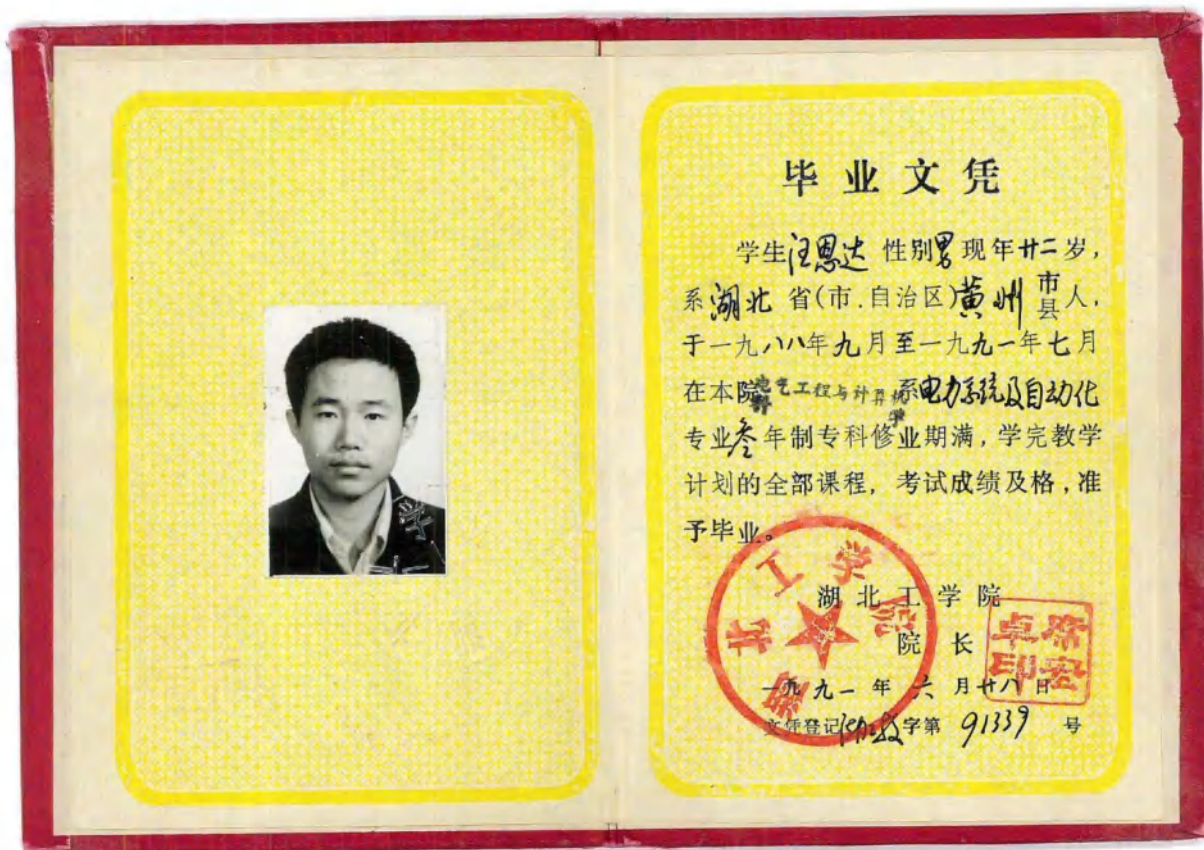 毕业文凭
学生汪恩达 性别男现年廿二岁,
系湖北省(市.自治区)黄州市县人,
于一九八八年九月至一九九一年七月
在本院电气工程与计算机科学系电力系统及自动化
专业叁年制专科修业期满,学完教学
计划的全部课程,考试成绩及格,准
予毕业。
湖北工学院
院长
一九九一年六月廿八日
文凭登记 字第 91339 号
湖北工学院